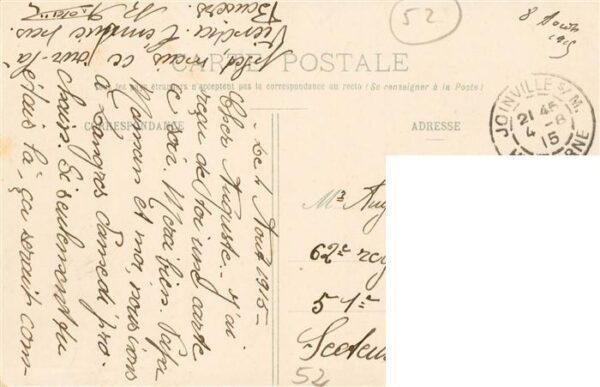 52
8 Aout
1915
CARTE POSTALE
Tous les pays étrangers n'acceptent pas la correspondance au recto (Se renseigner à la Poste)
CORRESPONDANCE
ADRESSE
JOINVILLE S/M.
21 45
4 -8
15
MARNE
Le 4 Aout 1915 -
Cher Auguste - J'ai
reçu de toi une carte
ce soir. Merci bien. Papa
Maman et moi, nous irons
à Langres Samedi pro-
chain. Si seulement tu
étais là, ça serait com-
plet mais ce jour-là
viendra. Eugénie
Baisers.
Mr Aug
62e reg
51e
Secteu
52